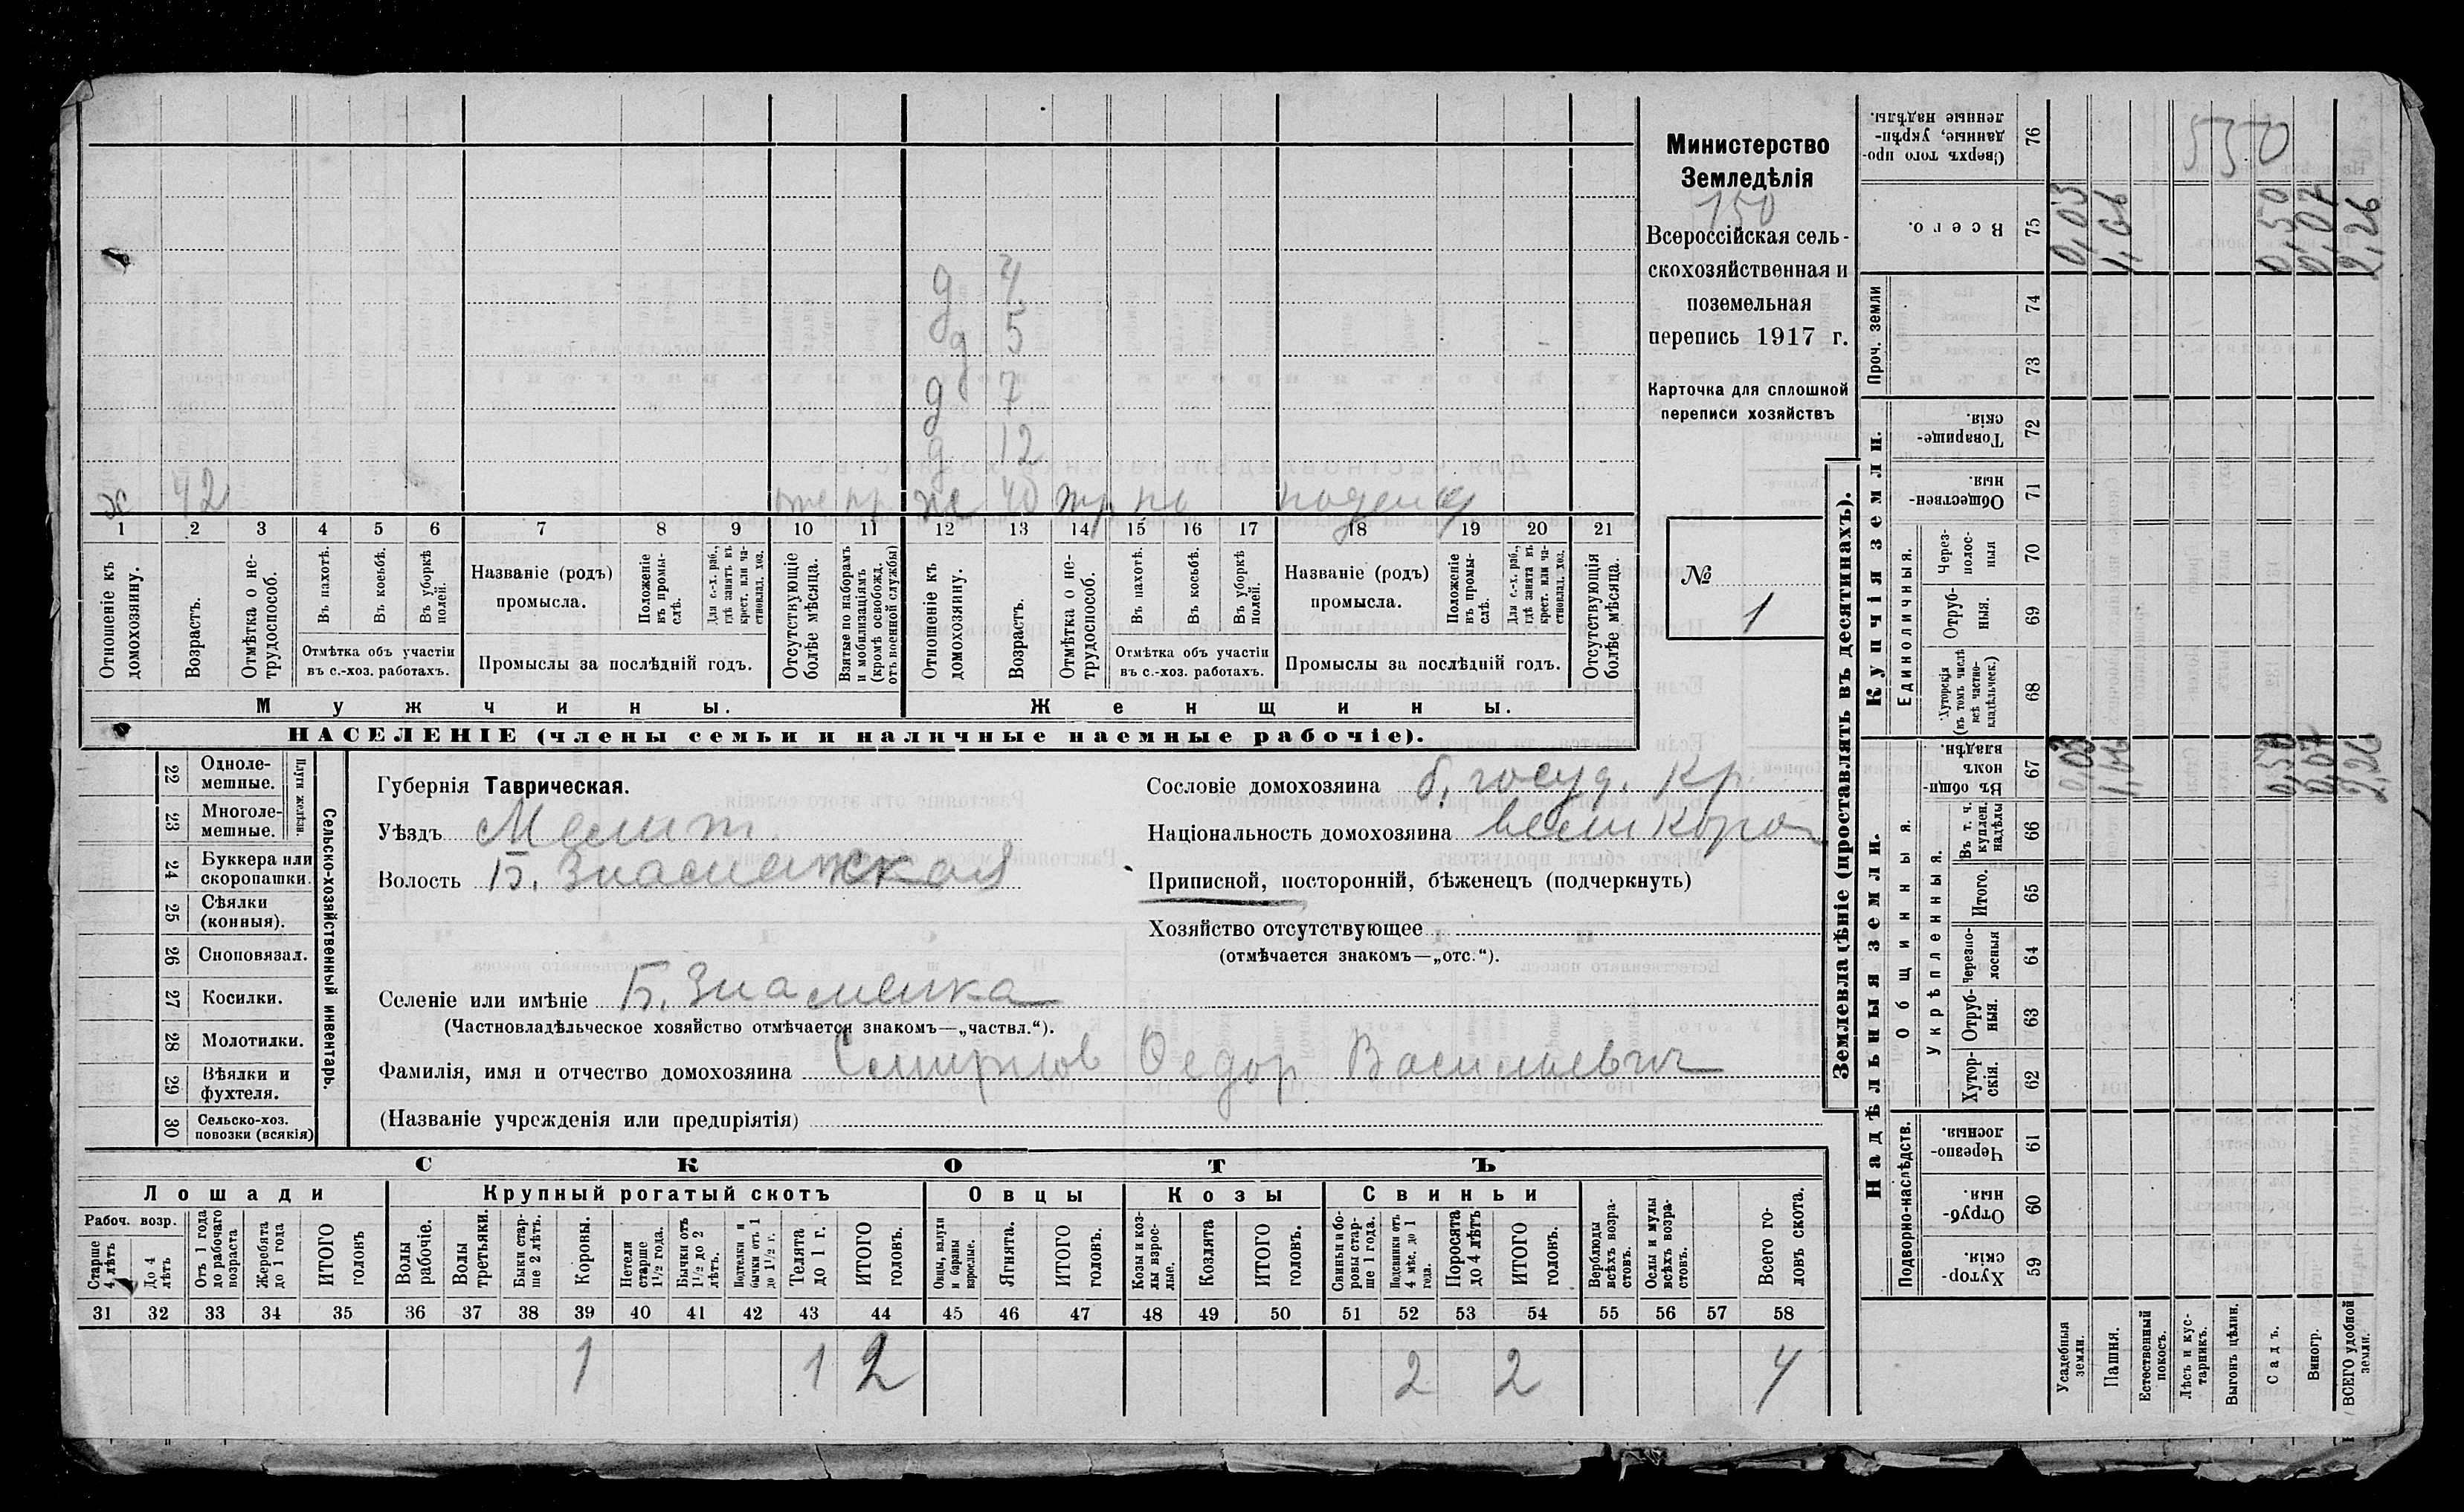 Министерство
Земледѣлія
150
Всероссійская сель-
скохозяйственная и
поземельная
перепись 1917 г.
Карточка для сплошной
переписи хозяйствъ
№
1
д 4
д 5
д 7
д 12
х 42 же 40 по
1 2 3 4 5 6 7 8 9 10 11 12 13 14 15 16 17 18 19 20 21
Отношеніе къ домохозяину.
Возрастъ.
Отмѣтка о не-трудоспособ.
Въ пахотѣ.
Въ косьбѣ.
Въ уборкѣ полей.
Отмѣтка объ участіи
въ с.-хоз. работахъ.
Названіе (родъ)
промысла.
Положеніе въ промы-слѣ.
Для с.-х. раб., гдѣ занятъ въ крест. или ча-стновлад. хоз.
Промыслы за послѣдній годъ.
Отсутствующіе болѣе мѣсяца.
Взятые по наборамъ и мобилизаціямъ (кромѣ освобожд. отъ военной службы)
Отношеніе къ домохозяину.
Возрастъ.
Отмѣтка о не-трудоспособ.
Въ пахотѣ.
Въ косьбѣ.
Въ уборкѣ полей.
Отмѣтка объ участіи
въ с.-хоз. работахъ.
Названіе (родъ)
промысла.
Положеніе въ промы-слѣ.
Для с.-х. раб., гдѣ занята въ крест. или ча-стновлад. хоз.
Промыслы за послѣдній годъ.
Отсутствующія болѣе мѣсяца.
Мужчины. Женщины.
НАСЕЛЕНІЕ (члены семьи и наличные наемные рабочіе).
Сельско-хозяйственный инвентарь.
Плуги желѣзн.
22 Одноле-мешные.
23 Многоле-мешные.
24 Буккера или скоропашки.
25 Сѣялки (конныя).
26 Сноповязал.
27 Косилки.
28 Молотилки.
29 Вѣялки и фухтеля.
30 Сельско-хоз. повозки (всякія)
Губернія Таврическая.
Уѣздъ Мелит.
Волость Б. Знаменская
Селеніе или имѣніе Б. Знаменка
(Частновладѣльческое хозяйство отмѣчается знакомъ—„частвл.“).
Фамилія, имя и отчество домохозяина Смирнов Федор Васильевич
(Названіе учрежденія или предпріятія)
Сословіе домохозяина б. госуд. кр.
Національность домохозяина великоро
Приписной, посторонній, бѣженецъ (подчеркнуть)
Хозяйство отсутствующее
(отмѣчается знакомъ—„отс.“).
СКОТЪ
Лошади Крупный рогатый скотъ Овцы Козы Свиньи
Рабоч. возр.
Старше 4 лѣтъ
До 4 лѣтъ
Отъ 1 года до рабочаго возраста
Жеребята до 1 года
ИТОГО головъ
Волы рабочіе.
Волы третьяки.
Быки стар-ше 2 лѣтъ.
Коровы.
Нетели старше 1½ года.
Бычки отъ 1½ до 2 лѣтъ.
Подтелки и бычки отъ 1 до 1½ г.
Телята до 1 г.
ИТОГО головъ.
Овцы, валухи и бараны взрослые.
Ягнята.
ИТОГО головъ.
Козы и коз-лы взрос-лые.
Козлята
ИТОГО головъ.
Свиньи и бо-ровы стар-ше 1 года.
Подсвинки отъ 4 мѣс. до 1 года.
Поросята до 4 лѣтъ
ИТОГО головъ.
Верблюды всѣхъ возра-стовъ.
Ослы и мулы всѣхъ возра-стовъ.
Всего го-ловъ скота.
31 32 33 34 35 36 37 38 39 40 41 42 43 44 45 46 47 48 49 50 51 52 53 54 55 56 57 58
1 1 2 2 2 4
Землевладѣніе (проставлять въ десятинахъ).
Надѣльныя земли.
Купчія земли.
Проч. земли
Подворно-наслѣдств.
Общинныя.
Укрѣпленныя.
Единоличныя.
Хутор-скія. 59
Отруб-ныя. 60
Черезпо-лосныя. 61
Хутор-скія. 62
Отруб-ныя. 63
Черезпо-лосныя 64
Итого. 65
Въ т. ч. куплен. надѣлы 66
Въ общи-номъ владѣн. 67
Хуторскія (въ томъ числѣ всѣ частно-владѣльческ.) 68
Отруб-ныя. 69
Через-полос-ныя 70
Обществен-ныя 71
Товарище-скія. 72
73
74
Всего. 75
Сверхъ того про-данные, укрѣп-ленные надѣлы. 76
550
0,03 1,66 0,50 0,07 2,26
0,03 1,66 0,50 0,07 2,26
Усадебныя земли.
Пашня.
Естественный покосъ.
Лѣсъ и кус-тарникъ.
Выгонъ цѣлин.
Садъ.
Виногр.
ВСЕГО удобной земли.